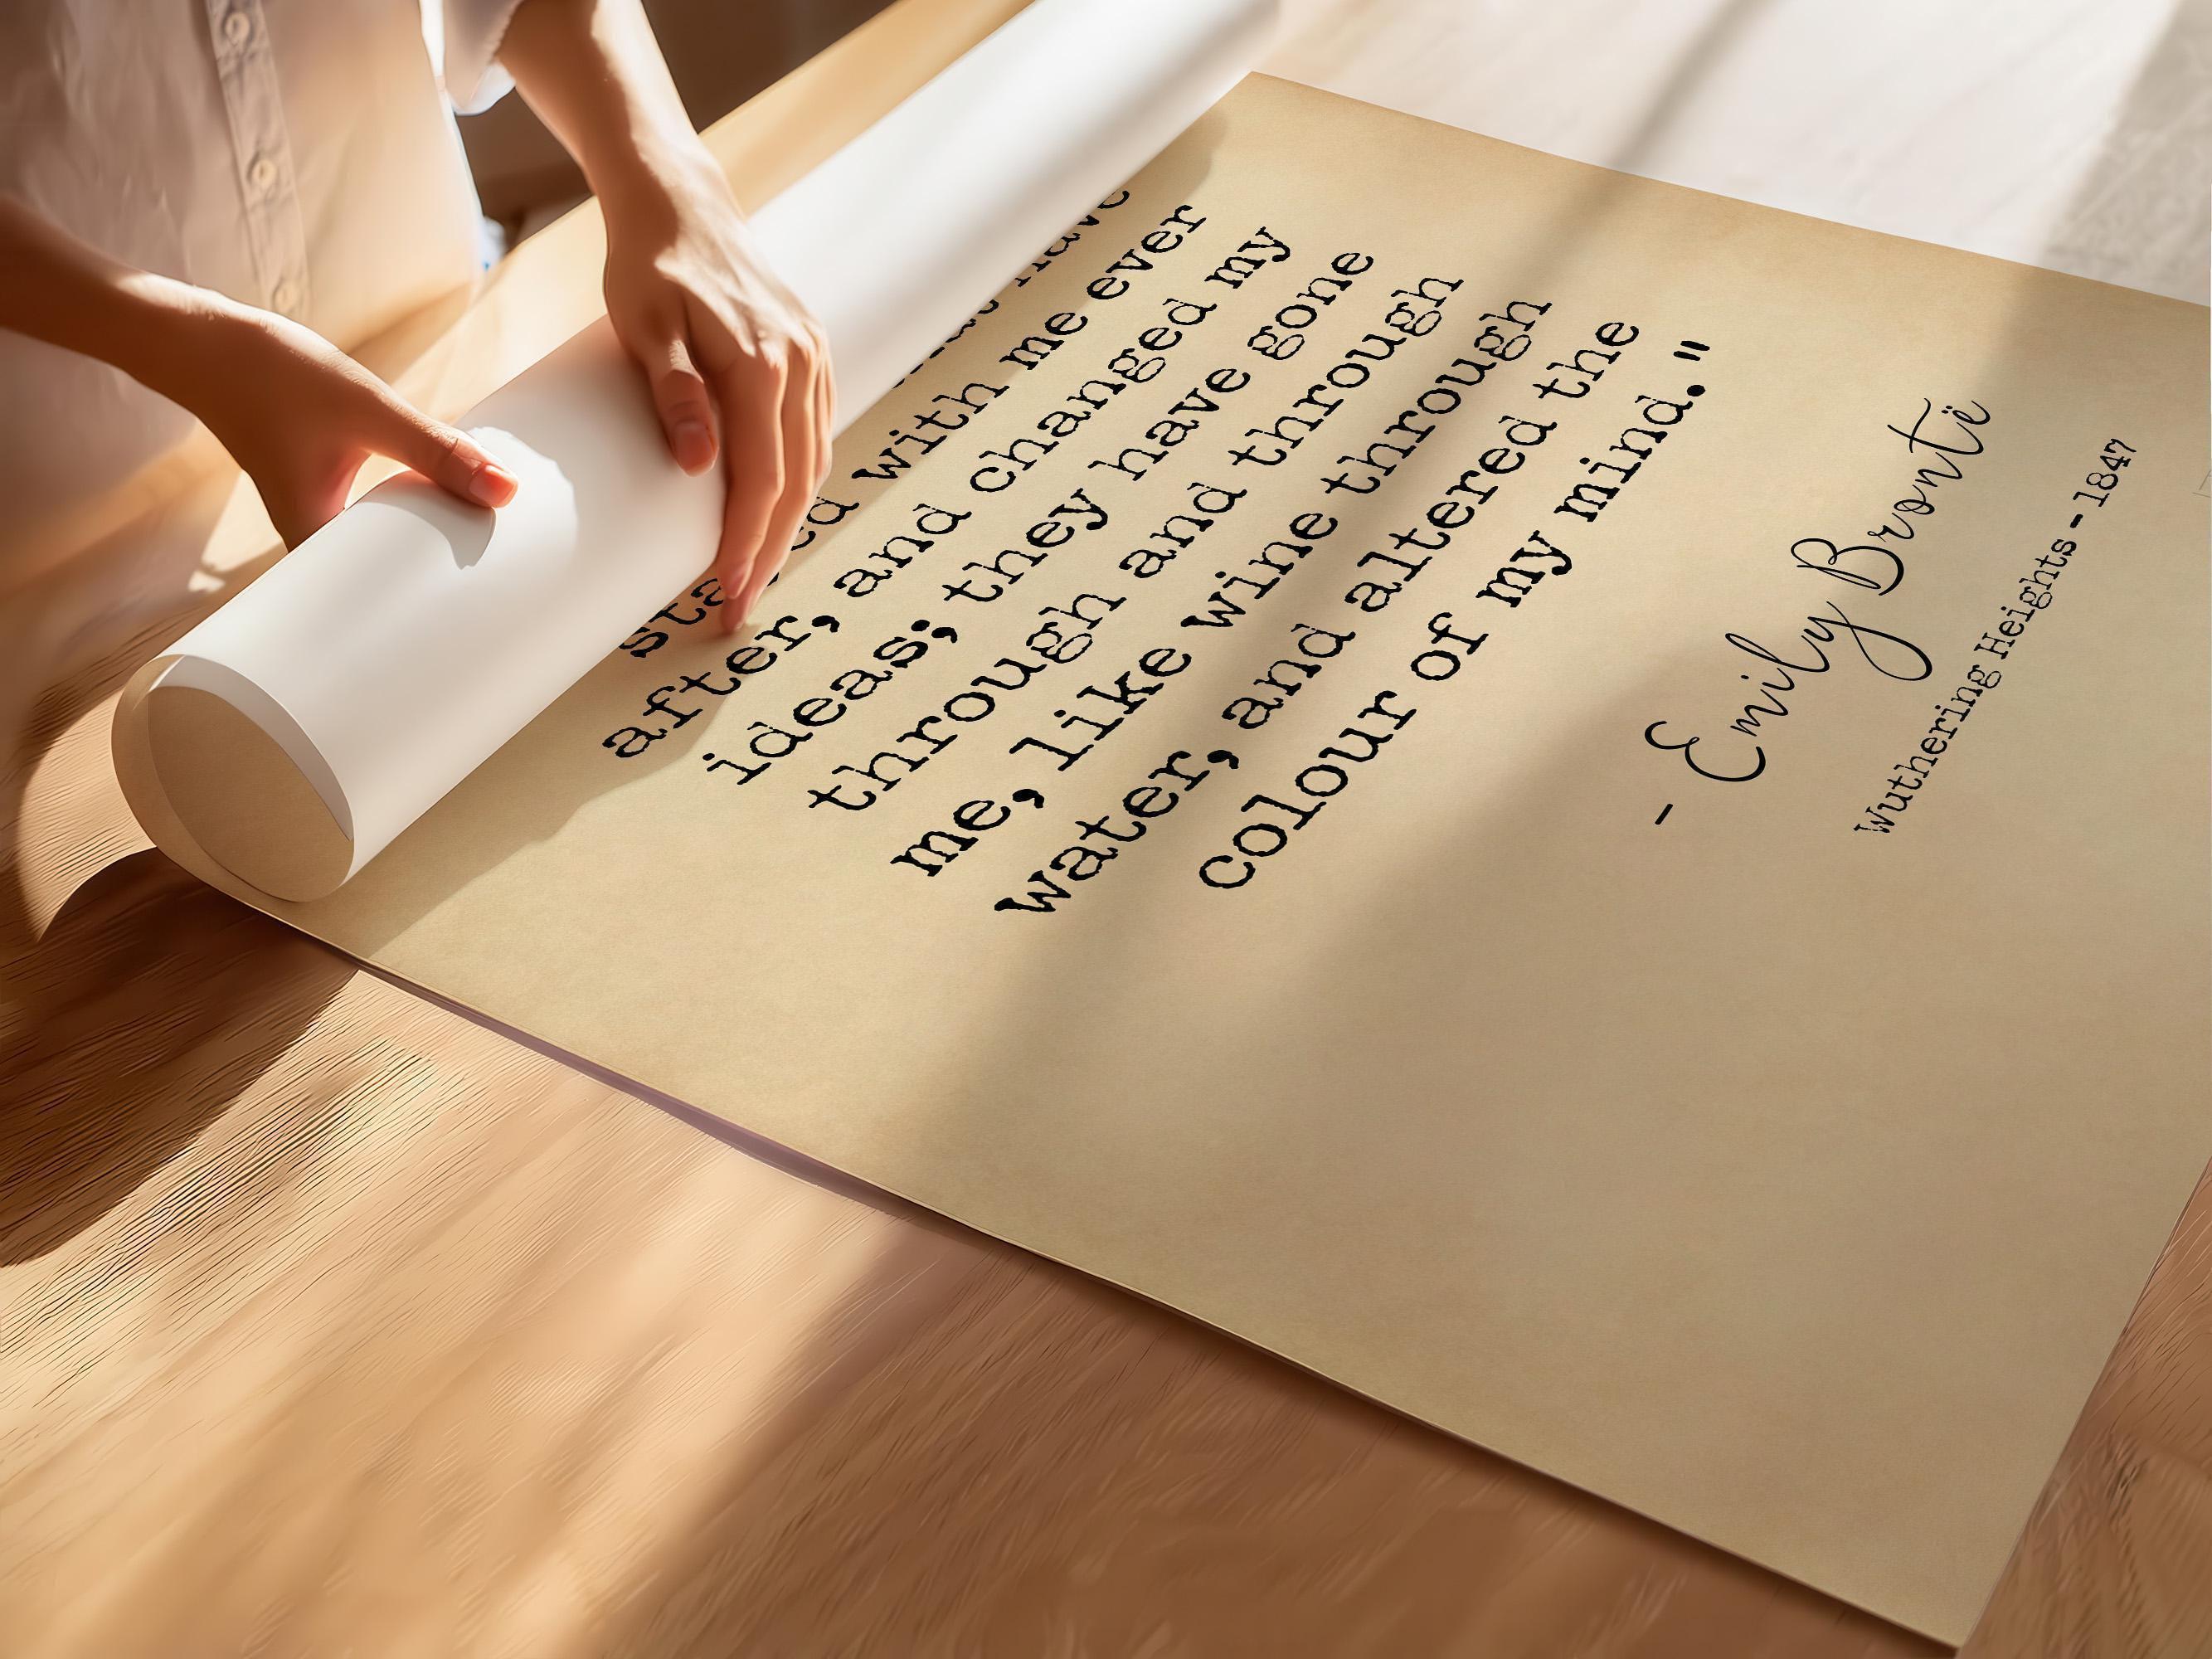 have
stayed with me ever
after, and changed my
ideas; they have gone
through and through
me, like wine through
water, and altered the
colour of my mind."
- Emily Brontë
Wuthering Heights - 1847